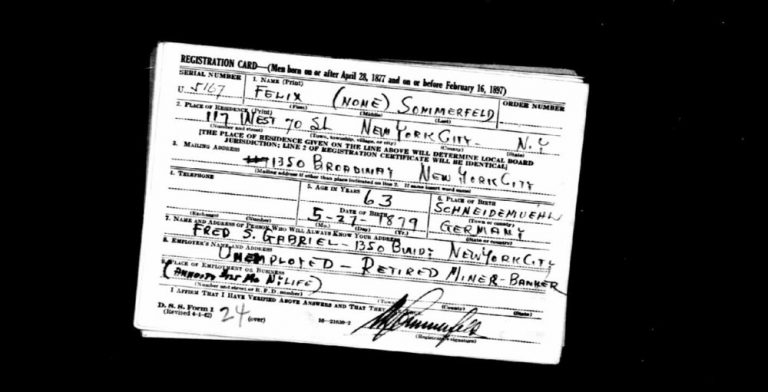 REGISTRATION CARD—(Men born on or after April 28, 1877 and on or before February 16, 1897)
SERIAL NUMBER 1. NAME (Print) ORDER NUMBER
U 5167 FELIX (NONE) SOMMERFELD
(First) (Middle) (Last)
2. PLACE OF RESIDENCE (Print)
117 WEST 70 St NEW YORK CITY N.Y
(Number and street) (Town, township, village, or city) (County) (State)
[THE PLACE OF RESIDENCE GIVEN ON THE LINE ABOVE WILL DETERMINE LOCAL BOARD
JURISDICTION; LINE 2 OF REGISTRATION CERTIFICATE WILL BE IDENTICAL]
3. MAILING ADDRESS
1350 BROADWAY NEW YORK CITY
[Mailing address if other than place indicated on line 2. If same insert word same]
4. TELEPHONE 5. AGE IN YEARS 6. PLACE OF BIRTH
63 SCHNEIDEMUEHL
DATE OF BIRTH (Town or county)
5-27-1879 GERMANY
(Exchange) (Number) (Mo.) (Day) (Yr.) (State or country)
7. NAME AND ADDRESS OF PERSON WHO WILL ALWAYS KNOW YOUR ADDRESS
FRED S. GABRIEL - 1350 NEW YORK CITY
8. EMPLOYER'S NAME AND ADDRESS
UNEMPLOYED - RETIRED MINER-BANKER
9. PLACE OF EMPLOYMENT OR BUSINESS
(Number and street or R. F. D. number) (Town) (County) (State)
I AFFIRM THAT I HAVE VERIFIED ABOVE ANSWERS AND THAT THEY
D. S. S. Form 1
(Revised 4-1-42) 24 (over)
(Registrant's signature)